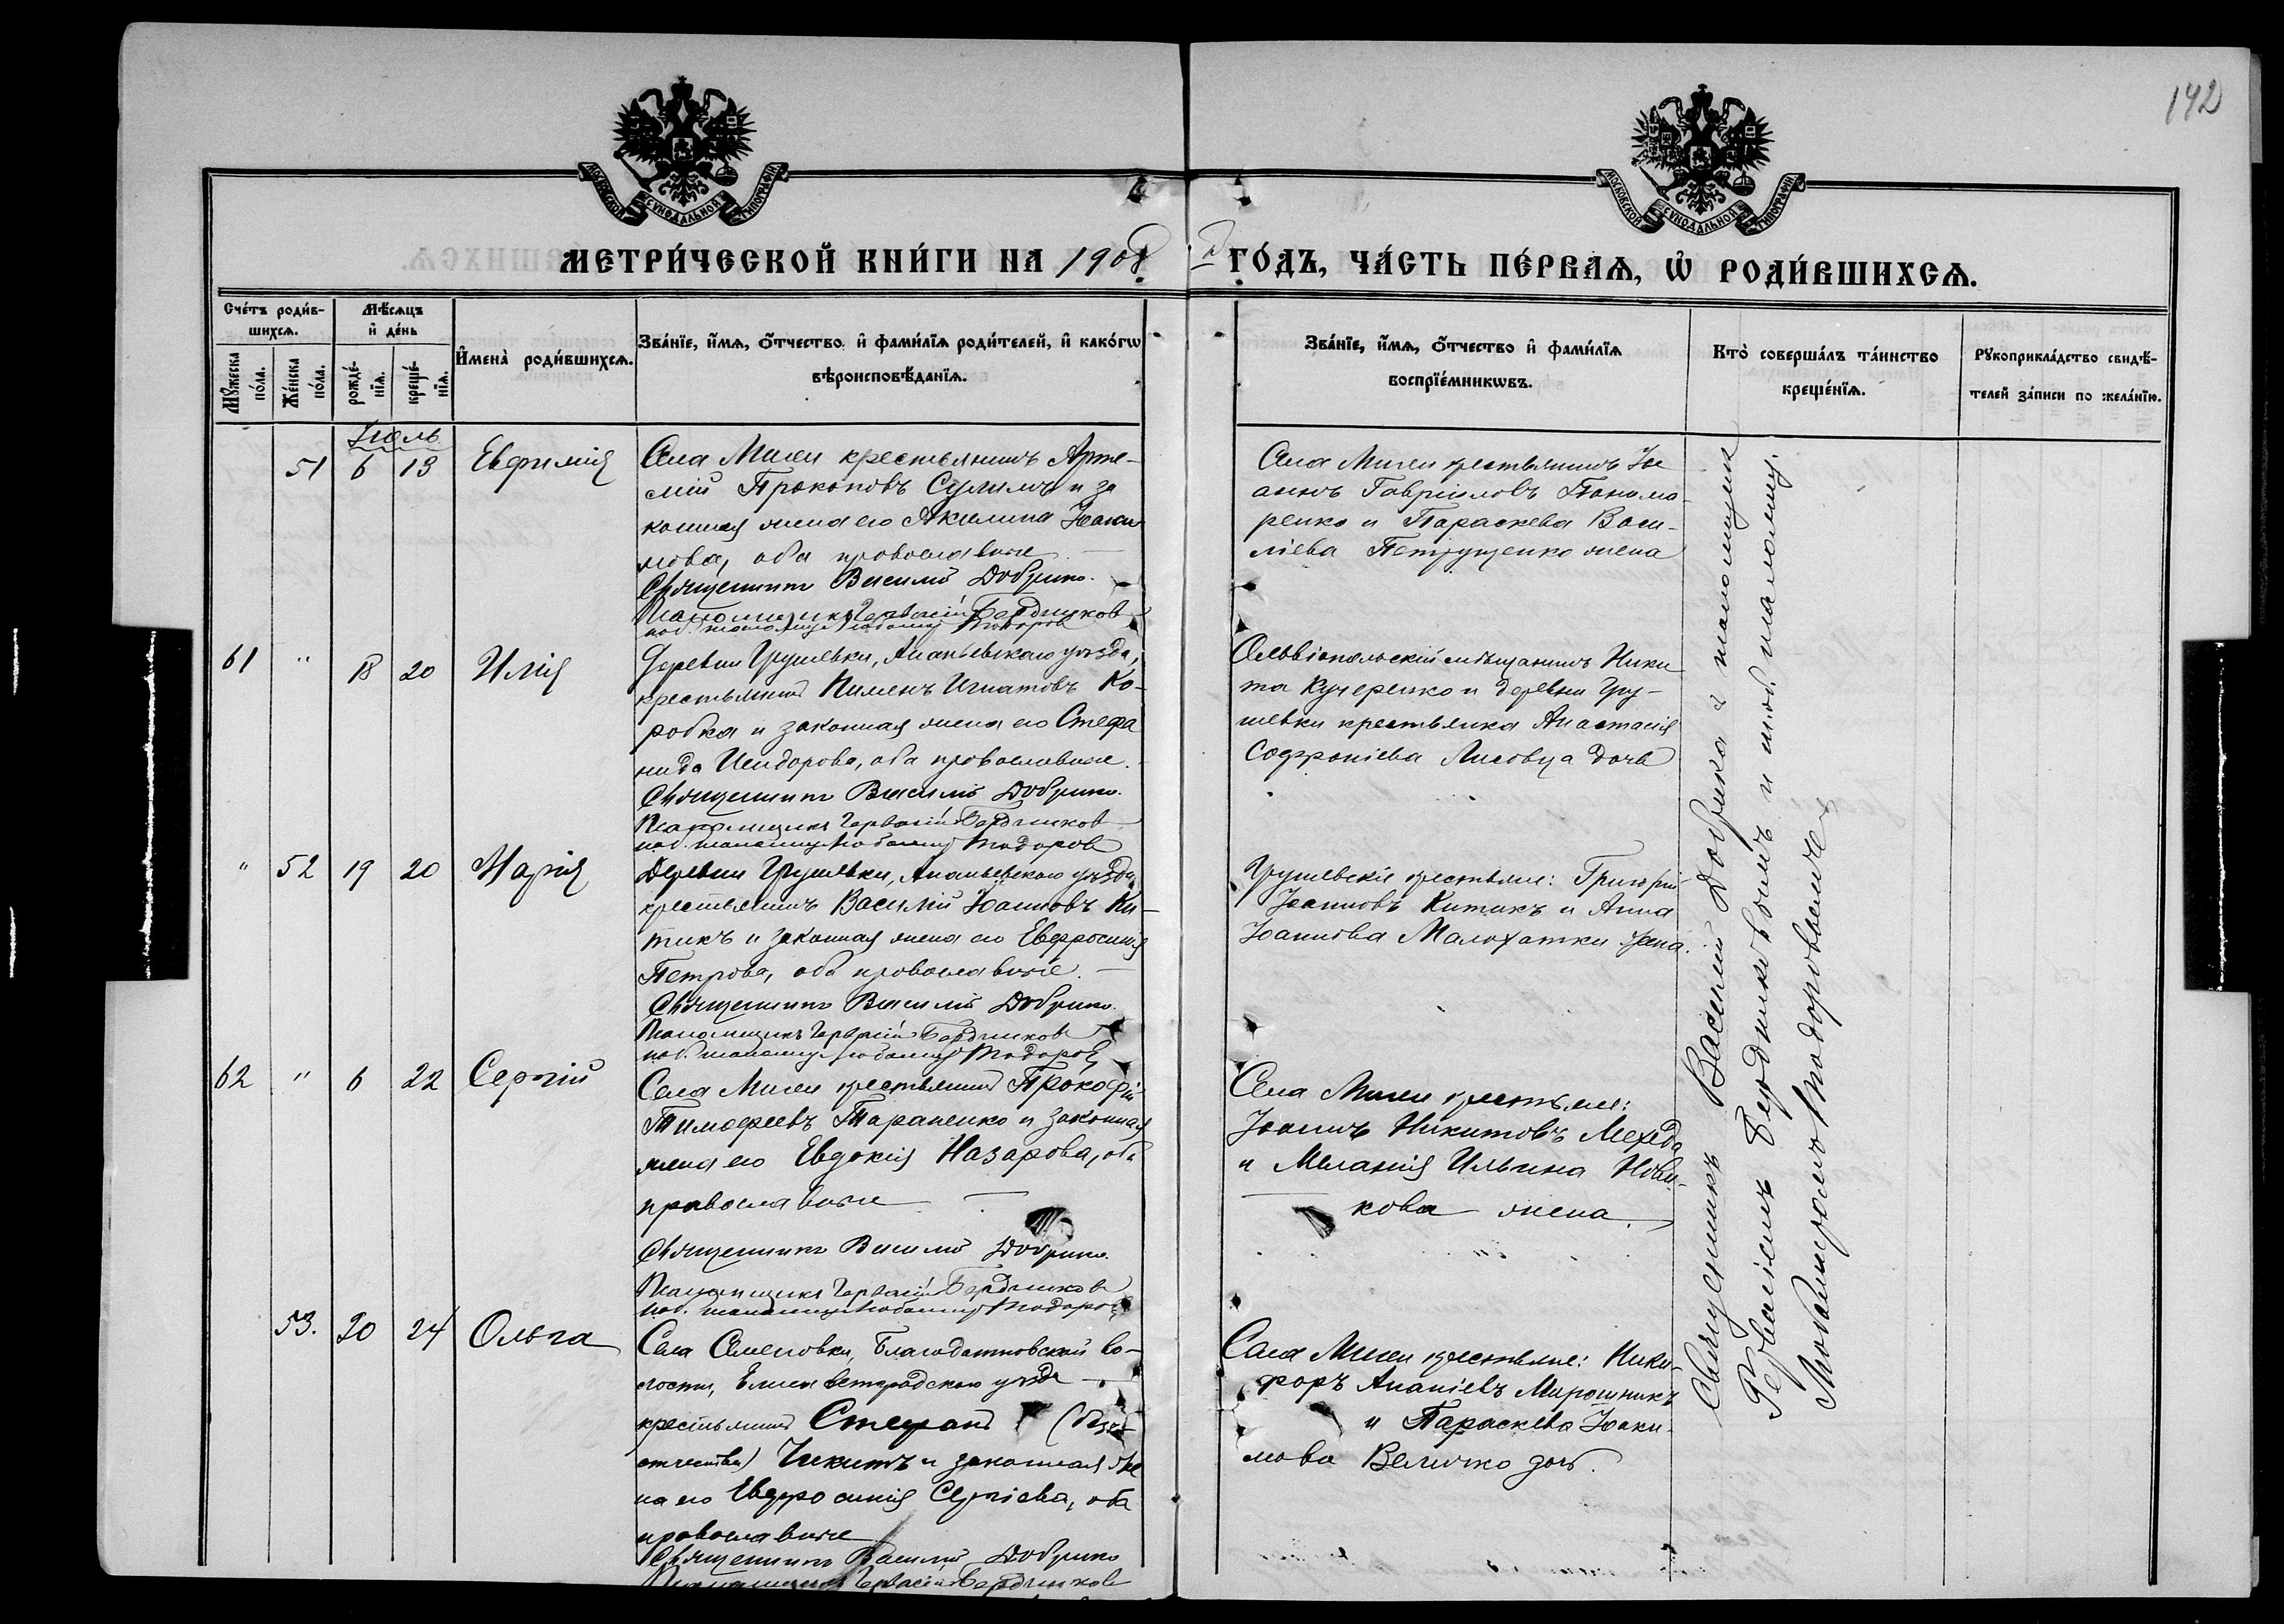 142
МОСКОВСКОЙ СѴНОДАЛЬНОЙ ТИПОГРАФІИ
МОСКОВСКОЙ СѴНОДАЛЬНОЙ ТИПОГРАФІИ
МЕТРИ́ЧЕСКОЙ КНИ́ГИ НА 1908 й ГО́ДЪ, ЧА́СТЬ ПЕ́РВАѦ, Ѡ҆ РОДИ́ВШИХСѦ.
Сче́тъ роди́в-
шихсѧ.
Мꙋ́жеска по́ла.
Же́нска по́ла.
Мѣ́сѧцъ
и҆ де́нь
рожде́-нїѧ.
креще́-нїѧ.
И҆мена̀ роди́вшихсѧ.
Зва́нїе, и҆́мѧ, ѻ҆́тчество и҆ фами́лїѧ роди́телей, и҆ како́гѡ
вѣроисповѣ́данїѧ.
Зва́нїе, и҆́мѧ, ѻ҆́тчество и҆ фами́лїѧ
воспрїе́мникѡвъ.
Кто̀ соверша́лъ та́инство
креще́нїѧ.
Рꙋкоприкла́дство свидѣ́-
телей за́писи по жела́нїю.
Іюль
51 6 13 Евфимія
Села Мигеи крестьянинъ Арте-
мій Прокоповъ Сулимъ и за
конная жена его Акилина Іоаки
мова, оба православные
Священникъ Василій Добрико.
Псаломщикъ Герасій Бердников
Села Мигеи крестьянинъ Іо
аннъ Гавріиловъ Понома
ренко и Параскева Васи-
ліева Петрущенко жена
61 " 18 20 Илія
Деревни Грушевки, Ананьевскаго уѣзда,
крестьянинъ Пименъ Игнатовъ Ко-
робка и законная жена его Стефа
нида Исидорова, оба православные.
Священникъ Василій Добрико.
Псаломщикъ Гервасій Бердников
Ольвіопольскій мѣщанинъ Ники
та Кучеренко и деревни Гру-
шевки крестьянка Анастасія
Софроніева Лисовца дочь
" 52 19 20 Марія
Деревни Грушевки, Ананьевскаго уѣзда
крестьянинъ Василій Іоанновъ Ки-
тикъ и законная жена его Евфросинія
Петрова, оба православные.
Священникъ Василій Добрико.
Псаломщикъ Гервасій Бердников
Грушевскіе крестьяне: Григорій
Іоанновъ Китикъ и Анна
Іоаннова Малохатки жена.
62 " 6 22 Сергій
Села Мигеи крестьянинъ Прокофій
Тимофеевъ Тараненко и законная
жена его Евдокія Назарова, оба
православные
Священникъ Василій Добрико.
Псаломщикъ Гервасій Бердников
Села Мигеи крестьяне:
Іоаннъ Никитовъ Мехеда
и Меланія Ильина Нови-
кова жена.
53. 20 24 Ольга
Села Семеновки, Благодатновской во-
лости, Елисаветградскаго уѣзда
крестьянинъ Стефанъ (безъ
отчества) Чикитъ и законная же
на его Евфросинія Сергіева, оба
православные
Священникъ Василій Добрико
Псаломщикъ Гервасій Бердников
Села Мигеи крестьяне: Ники-
форъ Ананіевъ Мирошникъ
и Параскева Іоаки-
мова Величко дочь.
Священникъ Василій Добрико с псаломщикомъ
Гервасіемъ Бердниковымъ и и.об. псаломщ.
Любомиромъ Тодоровымъ